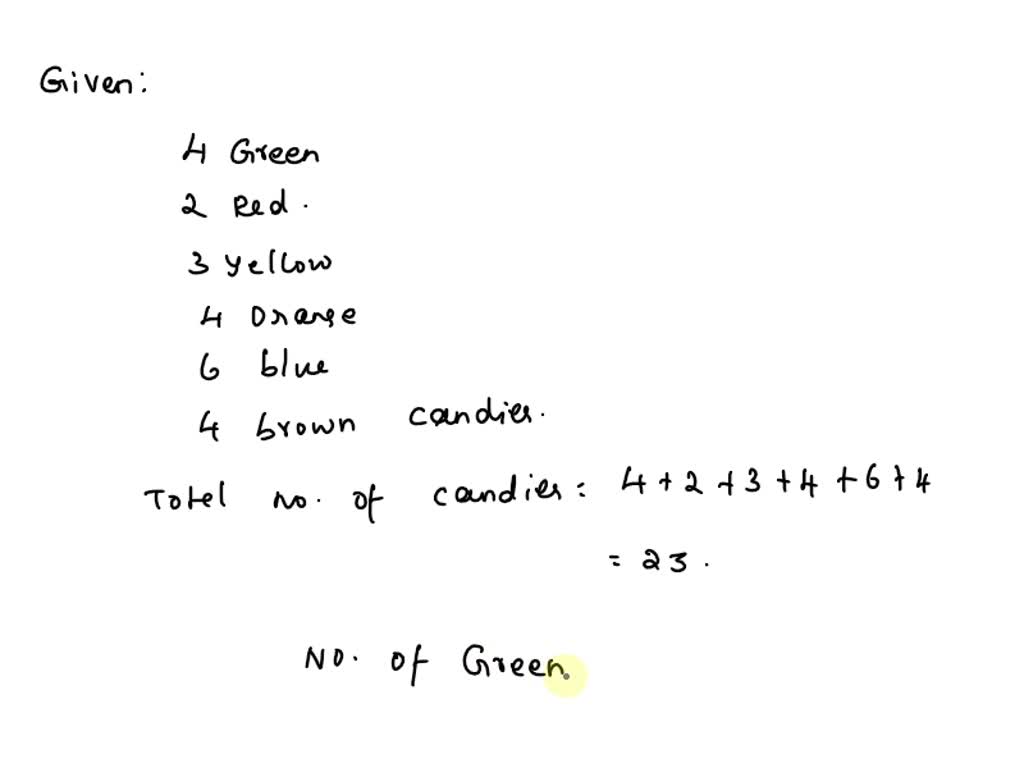 Given:
4 Green
2 Red.
3 yellow
4 Orange
6 blue
4 brown candies.
Totel no. of candies: 4 + 2 + 3 + 4 + 6 + 4
= 23.
No. of Green